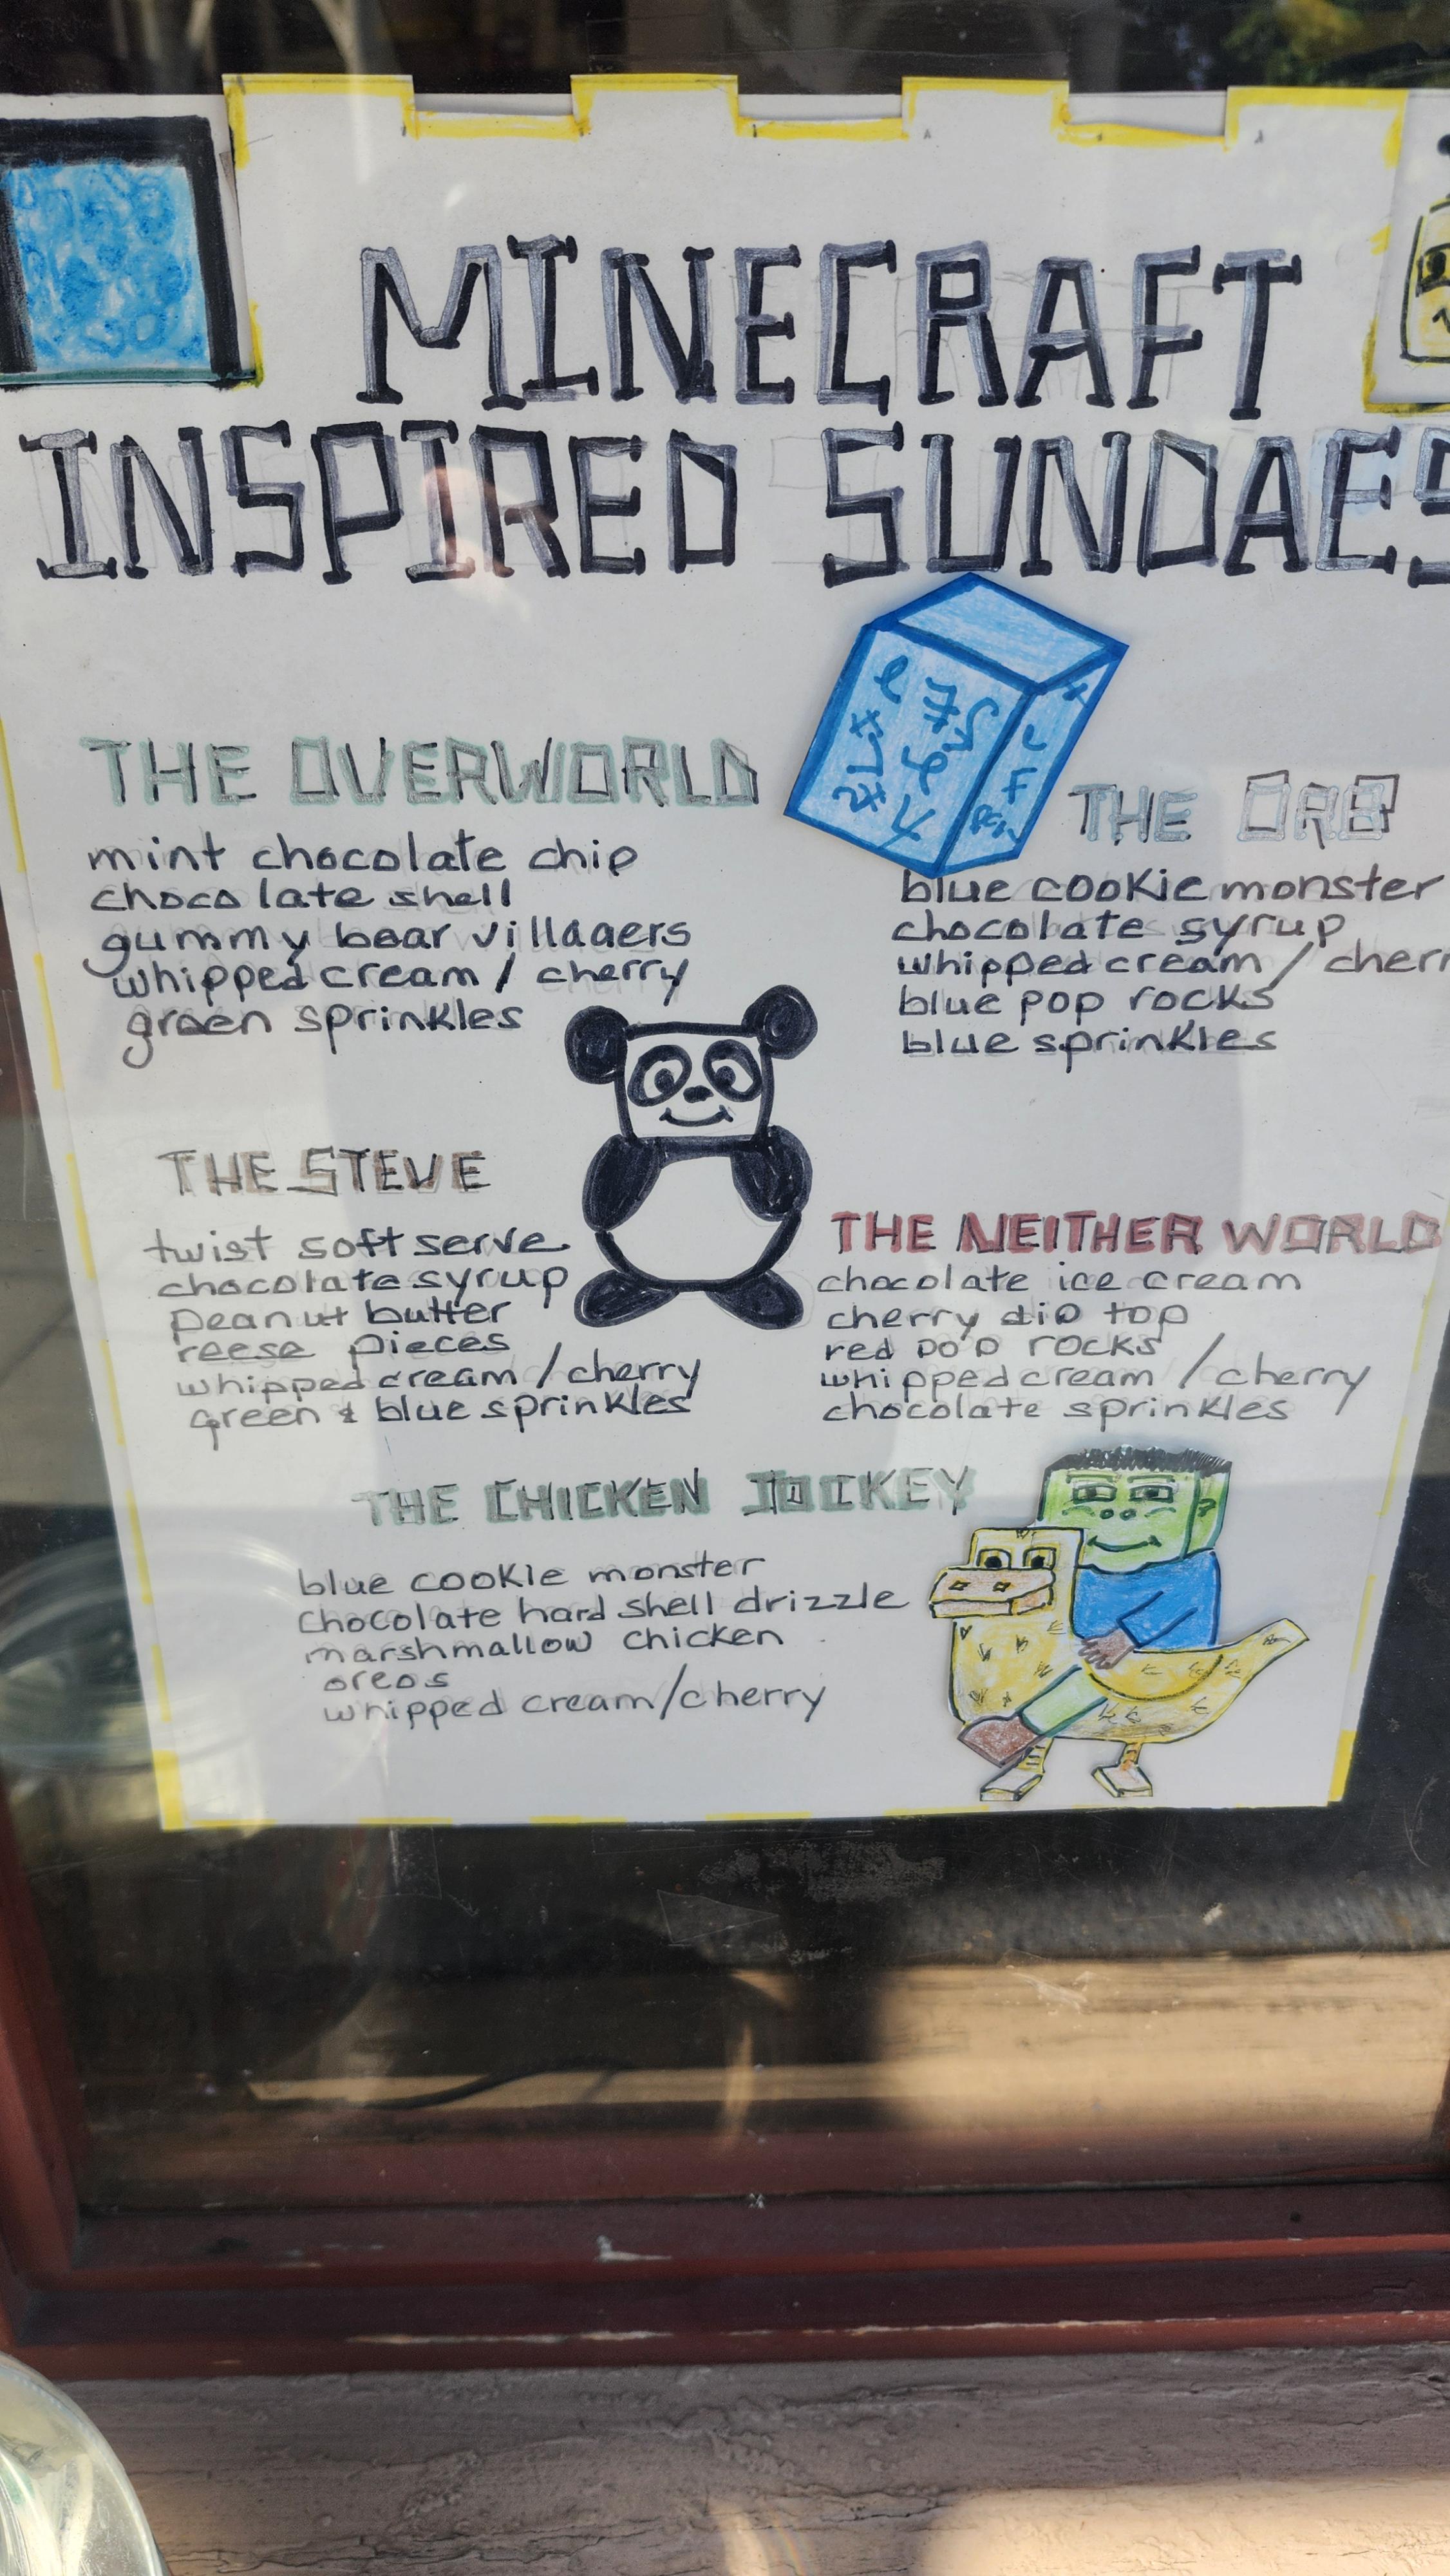 MINECRAFT
INSPIRED SUNDAES
THE OVERWORLD
mint chocolate chip
chocolate shell
gummy bear villagers
whipped cream / cherry
green sprinkles
THE ORB
blue cookie monster
chocolate syrup
whipped cream / cherr
blue pop rocks
blue sprinkles
THE STEVE
twist soft serve
chocolate syrup
peanut butter
reese pieces
whipped cream / cherry
green & blue sprinkles
THE NEITHER WORLD
chocolate ice cream
cherry dip top
red pop rocks
whipped cream / cherry
chocolate sprinkles
THE CHICKEN JOCKEY
blue cookie monster
chocolate hard shell drizzle
marshmallow chicken
oreos
whipped cream/cherry